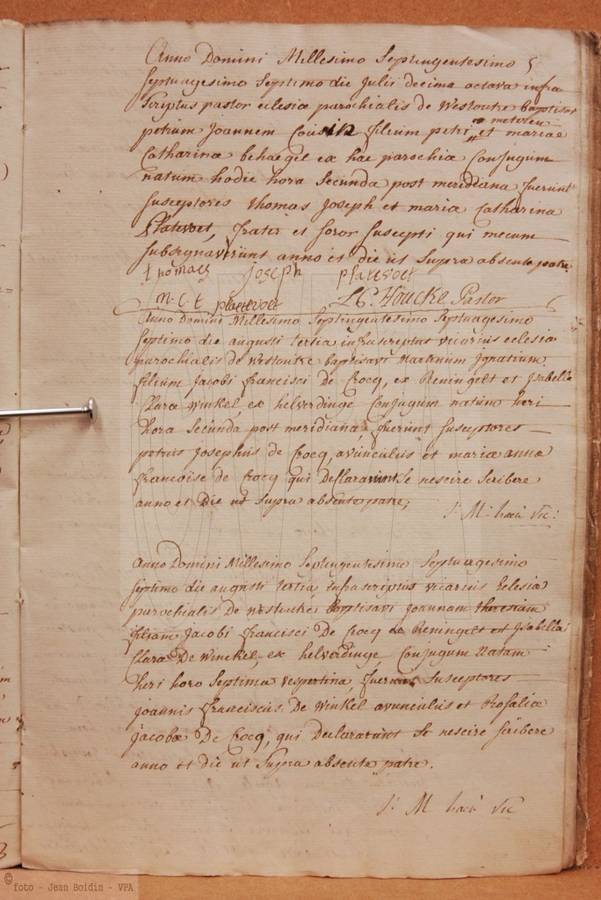 Anno Domini Millesimo Septingentesimo
septuagesimo septimo die julii decima octava infra
scriptus pastor eclesiæ parochialis de Westoutre baptisavi
ex meteren
petrum joannem Cousin filium petri et mariæ
Catharinæ behaegel ex hac parochia Conjugum
natum hodie hora secunda post meridiana fuerunt
susceptores thomas joseph et maria Catharina
platevoet, frater et soror suscepti qui mecum
subsignaverunt anno et die ut supra absente patre
thomaes joseph platevoet
M: C: t plattevoet L C: Houcke Pastor
Anno Domini Millesimo Septingentesimo Septuagesimo
septimo die augusti tertia infrascriptus vicarius eclesiæ
parochialis de Westoutre baptisavi Martinum ignatium
filium jacobi francisci de Crocq, ex Reningelt et isabellæ
Claræ Winkel ex helverdinge Conjugum natum heri
hora secunda post meridiana, fuerunt susceptores
petrus josephus de Crocq, avunculus et maria anna
francoise de Crocq qui Declararunt se nescire scribere
anno et Die ut supra absente patre,
vic:
anno Domini Millesimo Septingentesimo Septuagesimo
septimo die augusti tertia infrascriptus vicarius Eclesiæ
parochialis de Westoutre baptisavi joannam theresiam
filiam jacobi francisci De Crocq ex Reningelt et isabellæ
claræ De Winckel, ex helverdinge, Conjugum Natam
heri hora septima vespertina, fuerunt susceptores
joannis franciscus De Winkel avunculus et Rosalia
jacoba De Crocq, qui Declararunt se nescire scribere
anno et die ut supra absente patre.
vic
© foto - Jean Boidin - VPA